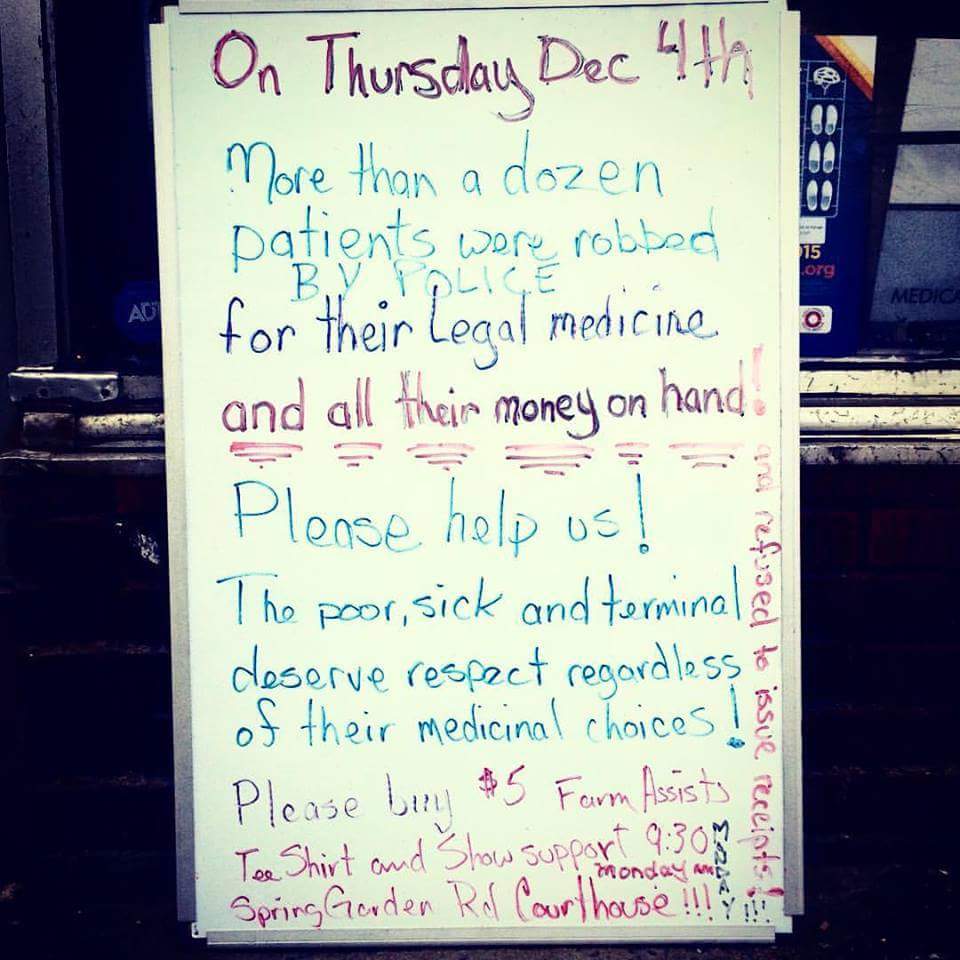 On Thursday Dec 4th
More than a dozen
patients were robbed
BY POLICE
for their Legal medicine
and all their money on hand!
and refused to issue receipts!
Please help us!
The poor, sick and terminal
deserve respect regardless
of their medicinal choices!
Please buy $5 Farm Assists
Tee Shirt and Show support 9:30
monday am
MONDAY!!!
Spring Garden Rd Courthouse!!!
15
.org
MEDICA